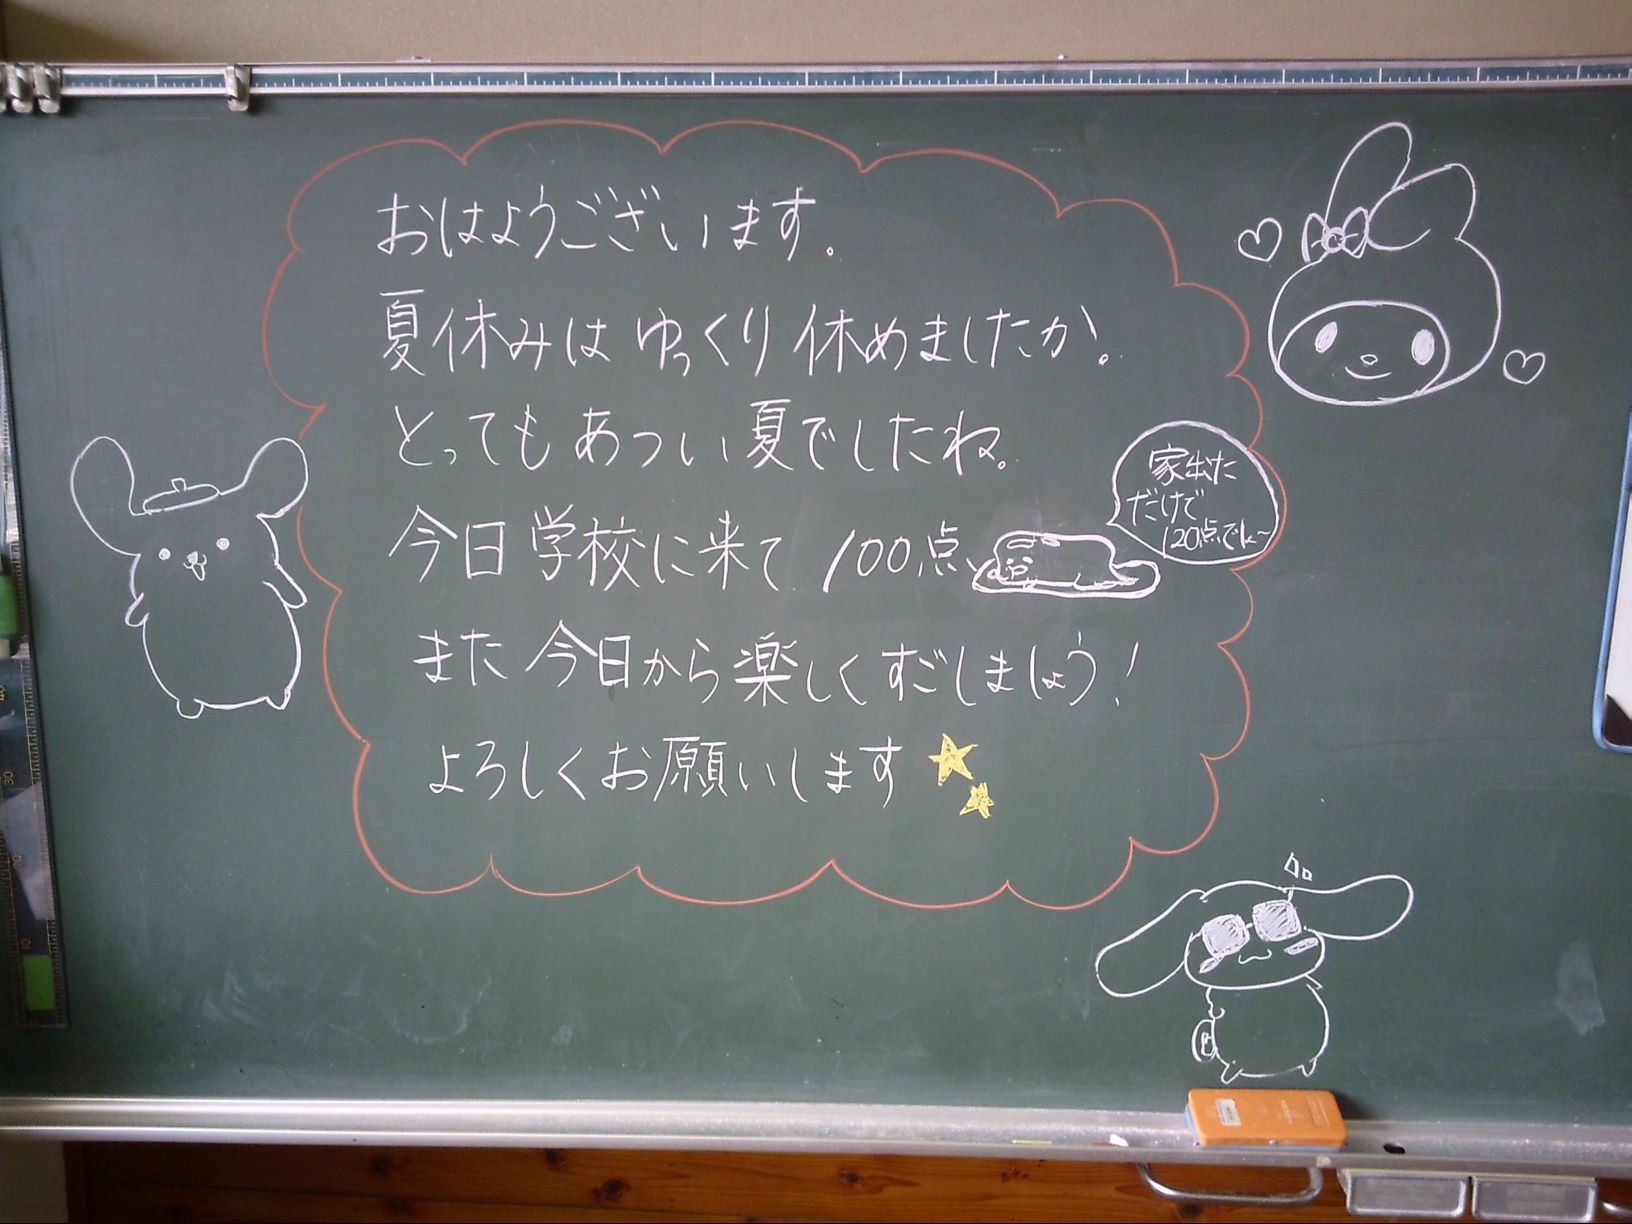 おはようございます。
夏休みは ゆっくり 休めましたか。
とってもあつい夏でしたね。
今日学校に来て 100点、
家出た
だけで
120点でしょ〜
また 今日から楽しくすごしましょう！
よろしくお願いします